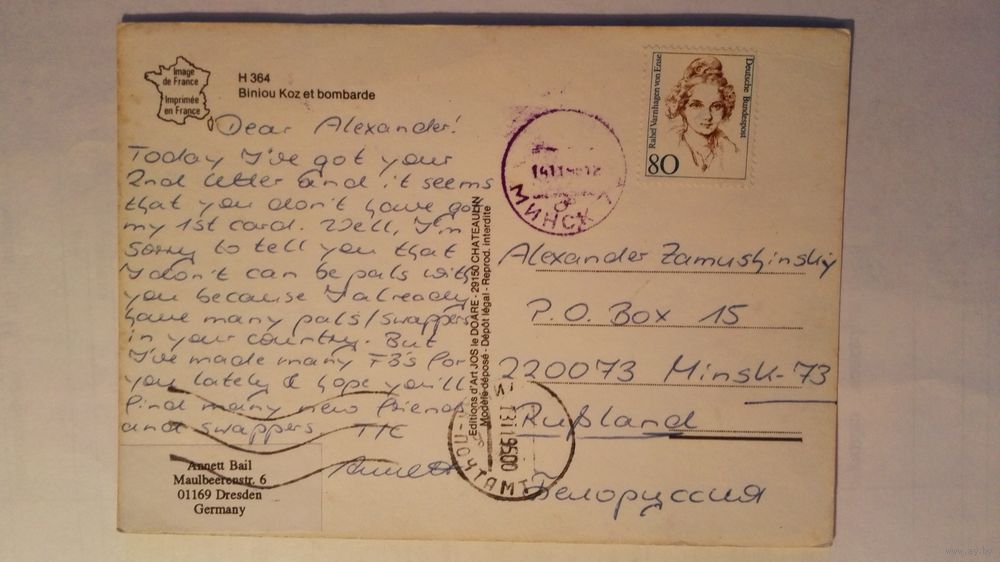 Image
de France
Imprimée
en France
H 364
Biniou Koz et bombarde
Dear Alexander!
Today I've got your
2nd letter and it seems
that you don't have got
my 1st card. Well, I'm
sorry to tell you that
I don't can be pals with
you because I already
have many pals/swappers
in your country. But
I've made many FB's for
you lately & hope you'll
find many new friends
and swappers. TTC
Annett
Annett Bail
Maulbeerenstr. 6
01169 Dresden
Germany
Editions d'Art JOS le DOARE - 29150 CHATEAULIN
Modèle déposé - Dépôt légal - Reprod. interdite
МИНСК
ПОЧТАМТ
Rahel Varnhagen von Ense
Deutsche Bundespost
80
Alexander Zamushinskiy
P.O. Box 15
220073 Minsk-73
Rußland
Белоруссия
www.ay.by